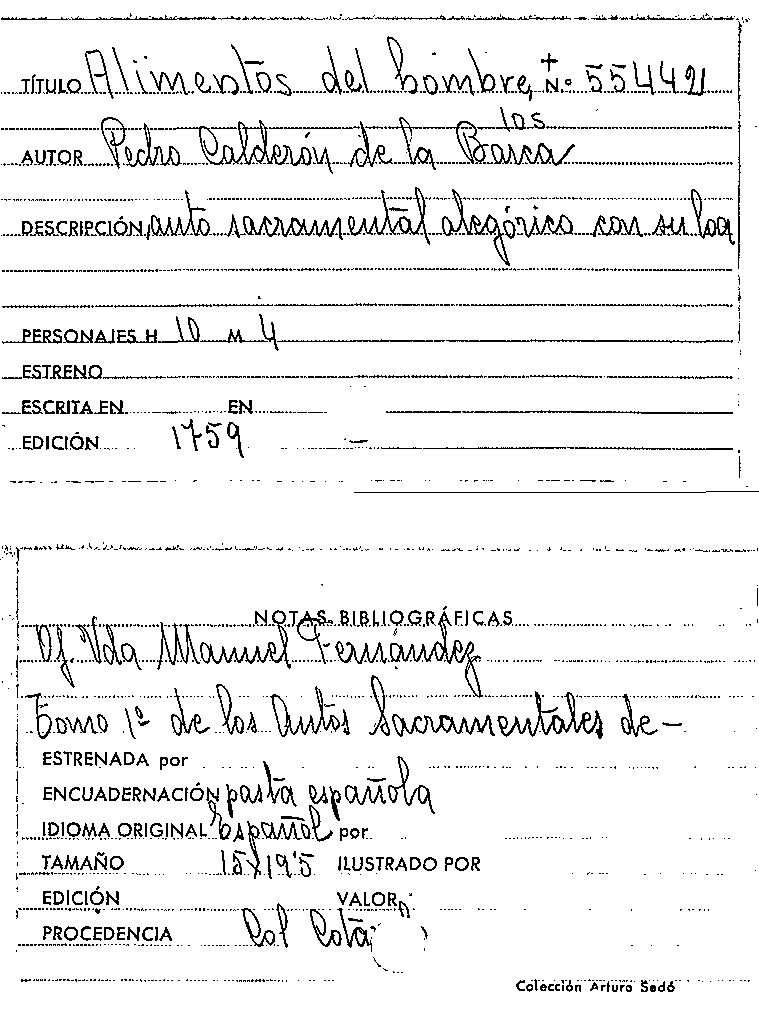 TÍTULO Alimentos del hombre, + N.º 55442
los
AUTOR Pedro Calderón de la Barca
DESCRIPCIÓN auto sacramental alegórico con su loa
PERSONAJES H 10 M 4
ESTRENO
ESCRITA EN EN
EDICIÓN 1759 —
NOTAS BIBLIOGRÁFICAS
Of. Vda Manuel Fernández
Tomo 1º de los Autos Sacramentales de —
ESTRENADA por
ENCUADERNACIÓN pasta española
IDIOMA ORIGINAL Español por
TAMAÑO 15x19'5 ILUSTRADO POR
EDICIÓN VALOR
PROCEDENCIA Col Cota
Colección Arturo Sedó